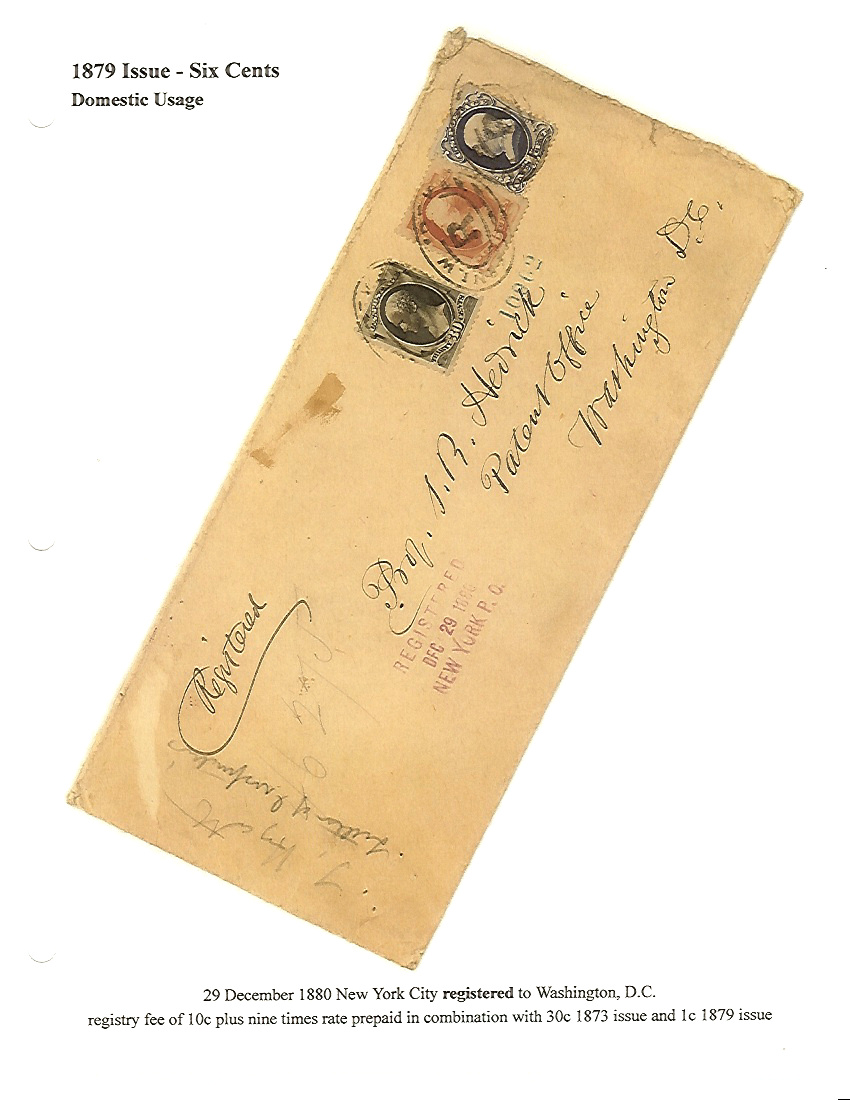 1879 Issue - Six Cents
Domestic Usage
Prof. I. R. Hedrick
Patent Office
Washington D.C.
REGISTERED
DEC 29 1880
NEW YORK P. O.
Registered
29 December 1880 New York City registered to Washington, D.C.
registry fee of 10c plus nine times rate prepaid in combination with 30c 1873 issue and 1c 1879 issue